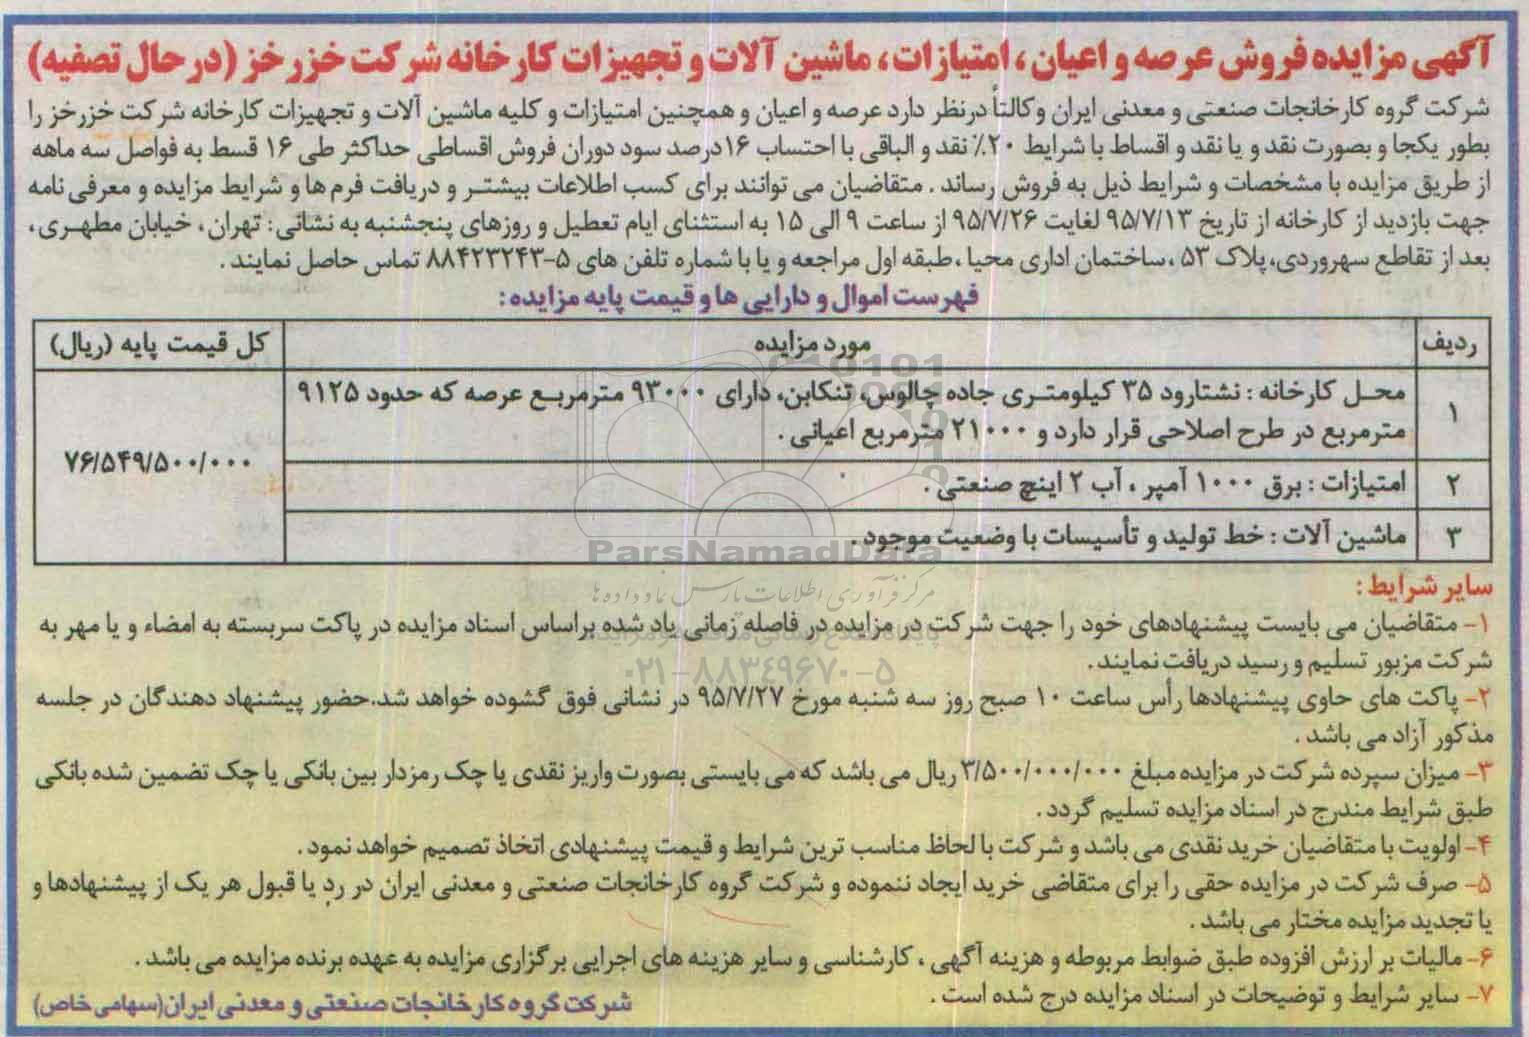 آگهی مزایده فروش عرصه و اعیان ، امتیازات ، ماشین آلات و تجهیزات کارخانه شرکت خزر خز (در حال تصفیه)
شرکت گروه کارخانجات صنعتی و معدنی ایران وکالتاً درنظر دارد عرصه و اعیان و همچنین امتیازات و کلیه ماشین آلات و تجهیزات کارخانه شرکت خزرخز را
بطور یکجا و بصورت نقد و یا نقد و اقساط با شرایط ۲۰٪ نقد و الباقی با احتساب ۱۶درصد سود دوران فروش اقساطی حداکثر طی ۱۶ قسط به فواصل سه ماهه
از طریق مزایده با مشخصات و شرایط ذیل به فروش رساند . متقاضیان می توانند برای کسب اطلاعات بیشتر و دریافت فرم ها و شرایط مزایده و معرفی نامه
جهت بازدید از کارخانه از تاریخ ۹۵/۷/۱۳ لغایت ۹۵/۷/۲۶ از ساعت ۹ الی ۱۵ به استثنای ایام تعطیل و روزهای پنجشنبه به نشانی : تهران ، خیابان مطهری ،
بعد از تقاطع سهروردی، پلاک ۵۳ ، ساختمان اداری محیا ، طبقه اول مراجعه و یا با شماره تلفن های ۵-۸۸۴۲۳۲۴۳ تماس حاصل نمایند .
فهرست اموال و دارایی ها و قیمت پایه مزایده :
ردیف مورد مزایده کل قیمت پایه (ریال)
۱ محل کارخانه : نشتارود ۳۵ کیلومتری جاده چالوس، تنکابن، دارای ۹۳۰۰۰ مترمربع عرصه که حدود ۹۱۲۵
مترمربع در طرح اصلاحی قرار دارد و ۲۱۰۰۰ مترمربع اعیانی .
۷۶/۵۴۹/۵۰۰/۰۰۰
۲ امتیازات : برق ۱۰۰۰ آمپر ، آب ۲ اینچ صنعتی .
۳ ماشین آلات : خط تولید و تأسیسات با وضعیت موجود .
010101
ParsNamadData
مرکز فرآوری اطلاعات پارس نماد داده ها
۰۲۱-۸۸۳۴۹۶۷۰-۵
سایر شرایط :
۱- متقاضیان می بایست پیشنهادهای خود را جهت شرکت در مزایده در فاصله زمانی یاد شده براساس اسناد مزایده در پاکت سربسته به امضاء و یا مهر به
شرکت مزبور تسلیم و رسید دریافت نمایند .
۲- پاکت های حاوی پیشنهادها رأس ساعت ۱۰ صبح روز سه شنبه مورخ ۹۵/۷/۲۷ در نشانی فوق گشوده خواهد شد.حضور پیشنهاد دهندگان در جلسه
مذکور آزاد می باشد .
۳- میزان سپرده شرکت در مزایده مبلغ ۳/۵۰۰/۰۰۰/۰۰۰ ریال می باشد که می بایستی بصورت واریز نقدی یا چک رمزدار بین بانکی یا چک تضمین شده بانکی
طبق شرایط مندرج در اسناد مزایده تسلیم گردد .
۴- اولویت با متقاضیان خرید نقدی می باشد و شرکت با لحاظ مناسب ترین شرایط و قیمت پیشنهادی اتخاذ تصمیم خواهد نمود .
۵- صرف شرکت در مزایده حقی را برای متقاضی خرید ایجاد ننموده و شرکت گروه کارخانجات صنعتی و معدنی ایران در رد یا قبول هر یک از پیشنهادها و
یا تجدید مزایده مختار می باشد .
۶- مالیات بر ارزش افزوده طبق ضوابط مربوطه و هزینه آگهی ، کارشناسی و سایر هزینه های اجرایی برگزاری مزایده به عهده برنده مزایده می باشد .
۷- سایر شرایط و توضیحات در اسناد مزایده درج شده است .
شرکت گروه کارخانجات صنعتی و معدنی ایران(سهامی خاص)